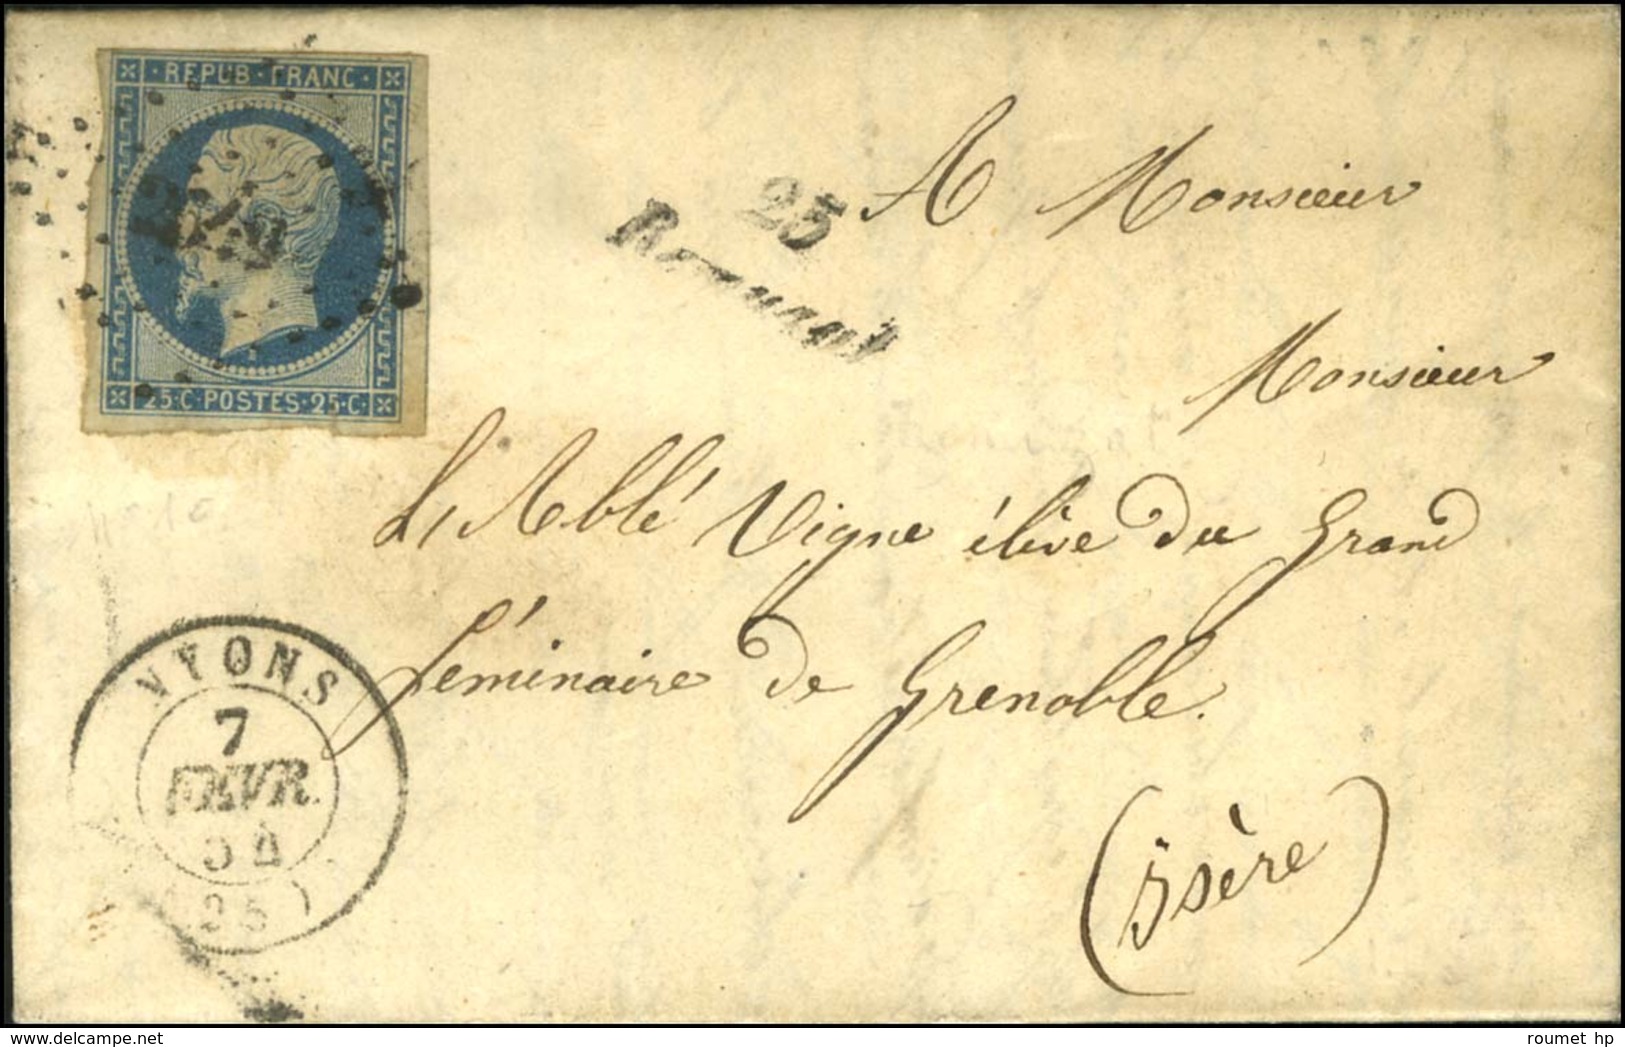 · REPUB · FRANC ·
25·C·POSTES·25·C·
25
A Monsieur
Monsieur
L'Abbé Vigne élève du Grand
Séminaire de Grenoble.
(Isère)
N° 10
NYONS
7
FEVR.
54
(25)
roumet hp